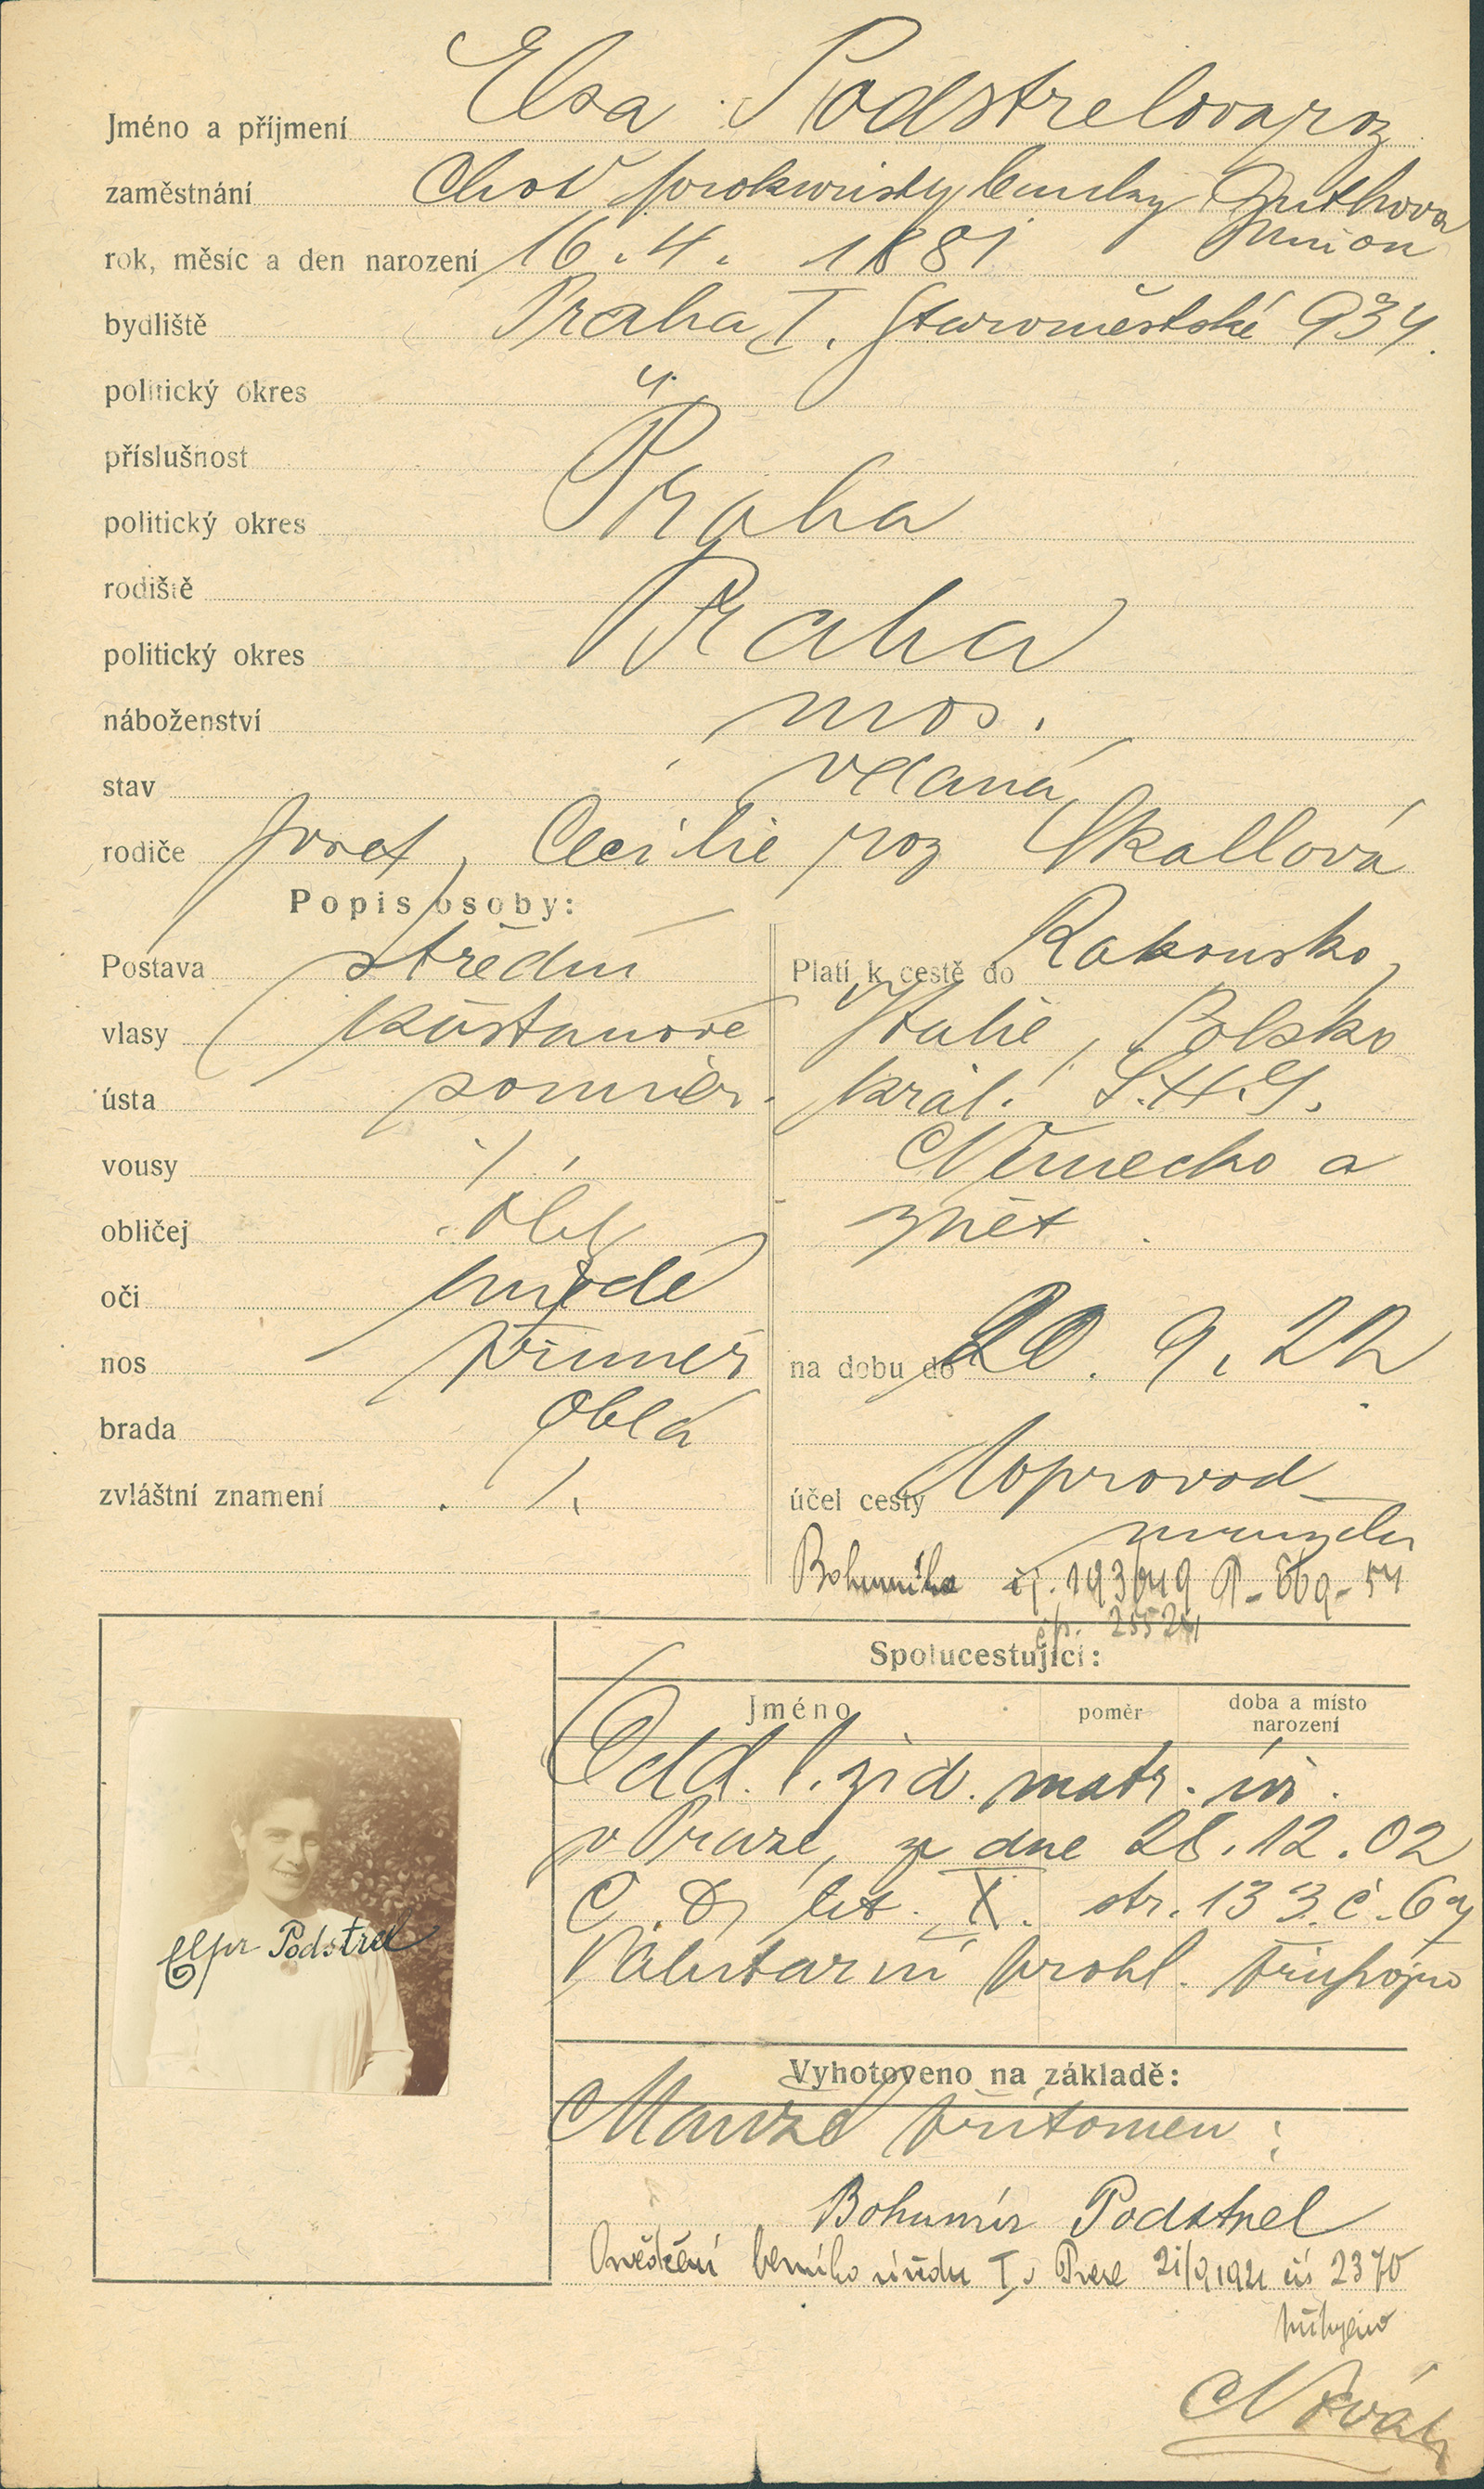 Jméno a příjmení Elsa Podstrelova roz
zaměstnání Choť prokuristy banky Guthova
Union
rok, měsíc a den narození 16. 4. 1881
bydliště Praha I. Staroměstské 934.
politický okres 4.
příslušnost
politický okres Praha
rodiště
politický okres Praha
náboženství mos.
stav vdaná
rodiče Josef, Cecilie roz Skallová
Popis osoby:
Postava střední
vlasy kaštanové
ústa souměr.
vousy /.
obličej obl
oči hnědé
nos přiměř
brada oblá
zvláštní znamení /.
Platí k cestě do Rakousko,
Italie, Polsko
král. S.H.S.
Německo a
zpět
na dobu do 20. 9. 22
účel cesty Doprovod
manžela
čj. 193649
čp.
Spolucestující:
Jméno poměr doba a místo narození
Odd. l. žid. matr. úř.
v Praze, ze dne 28. 12. 02
lit. X. str. 133. č. 69
Valutární prohl. připojeno
Vyhotoveno na základě:
Manžel přítomen:
Bohumír Podstrel
Osvědčení berního úřadu I. v Praze 21/9 1921 čís 2370
připojeno
Novák
Podstrel